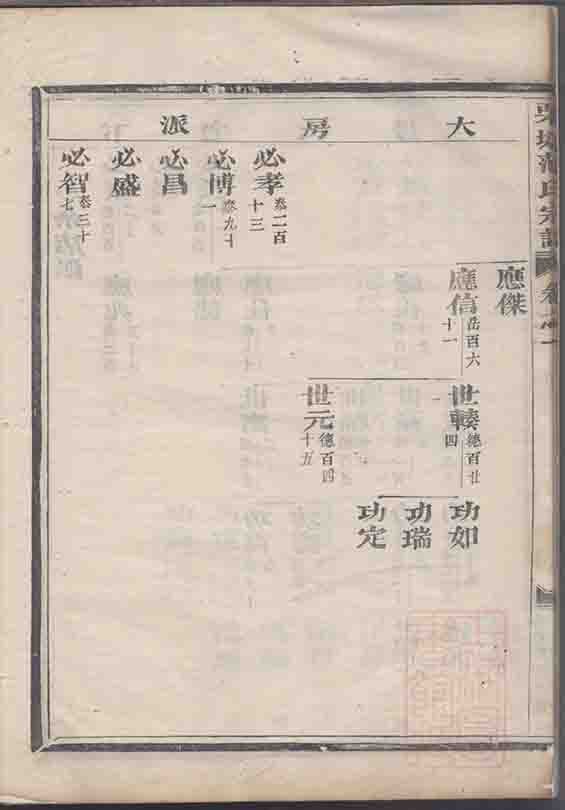 宗譜
大房派
應傑
應信 岳百六十一
必孝 叁二百十三
必博 叁九十一
必昌
必盛
必智 叁三十七
世輳 德百廿四
世元 德百四十五
功如
功瑞
功定